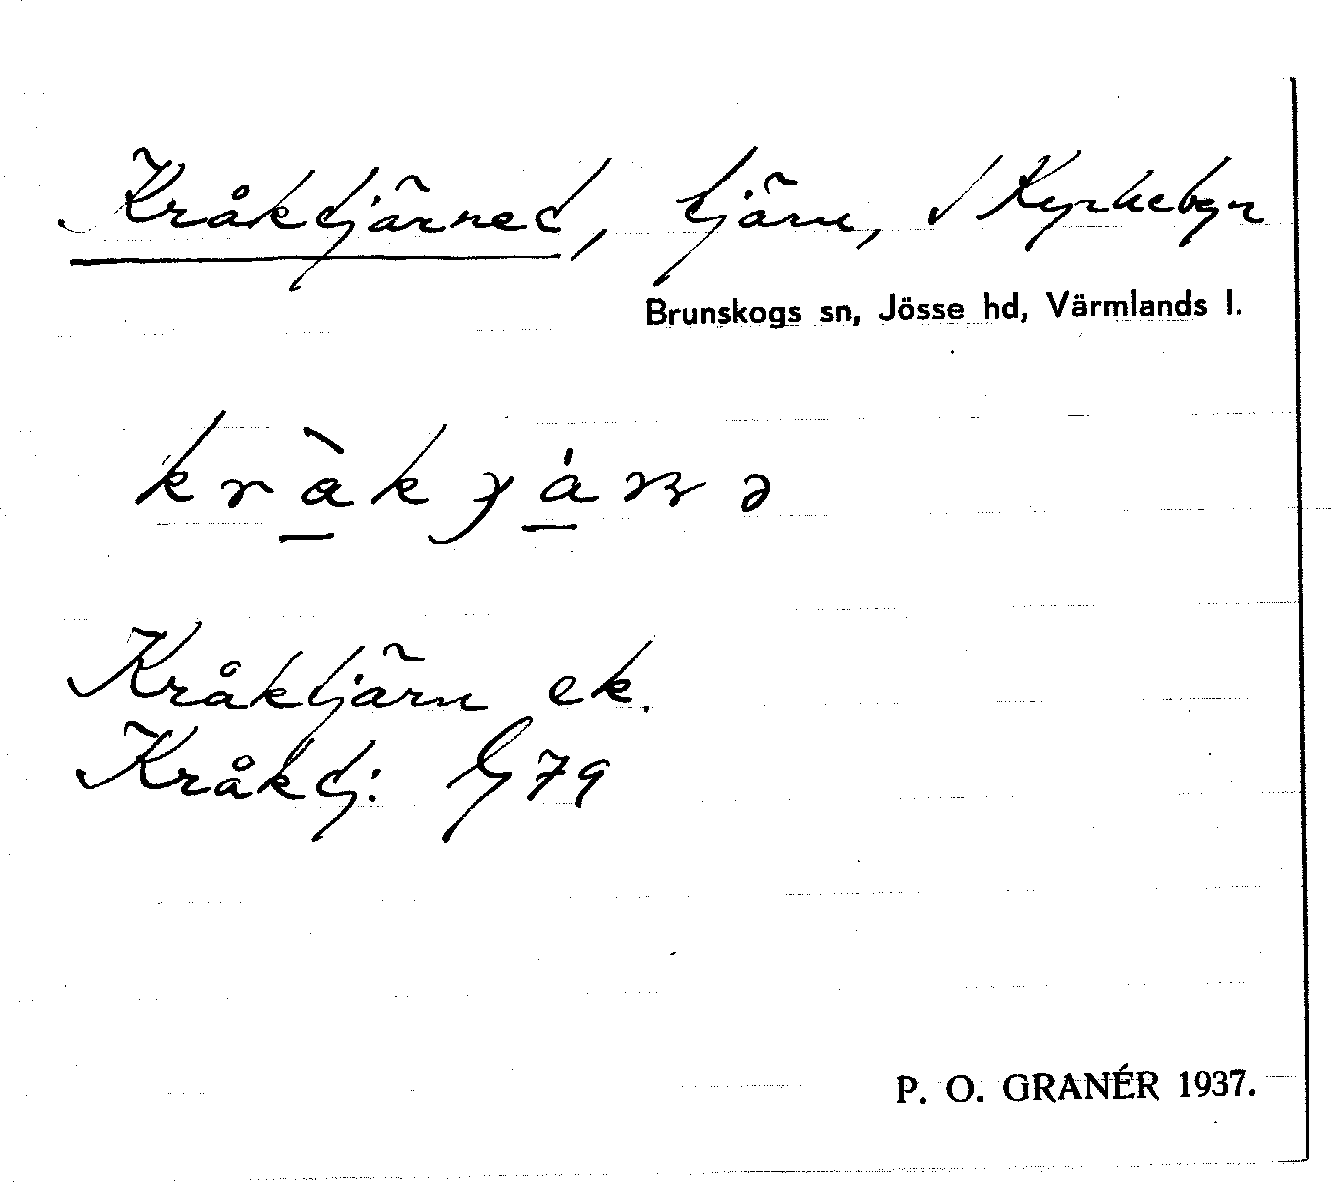 Kråktjärnet, tjärn, i Kyrkebyn
Brunskogs sn, Jösse hd, Värmlands l.
Kråktjärn ek.
Kråktj: G79
P. O. GRANÉR 1937.